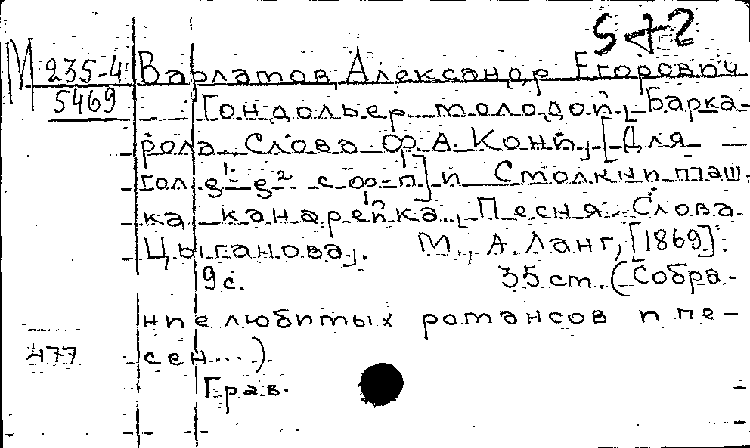 5+2
М 235-4 Варламов, Александр Егорович
5469 Гондольер молодой, Барка-
рола. Слова Ф.А. Кони, [Для
гол. g¹-g² с ф-п] и Столкни пташ-
ка канарейка, Песня. Слова
Цыганова. М., А. Ланг, [1869].
9 с. 35 см. (Собра-
ние любимых романсов и пе-
477 сен...)
Грав.